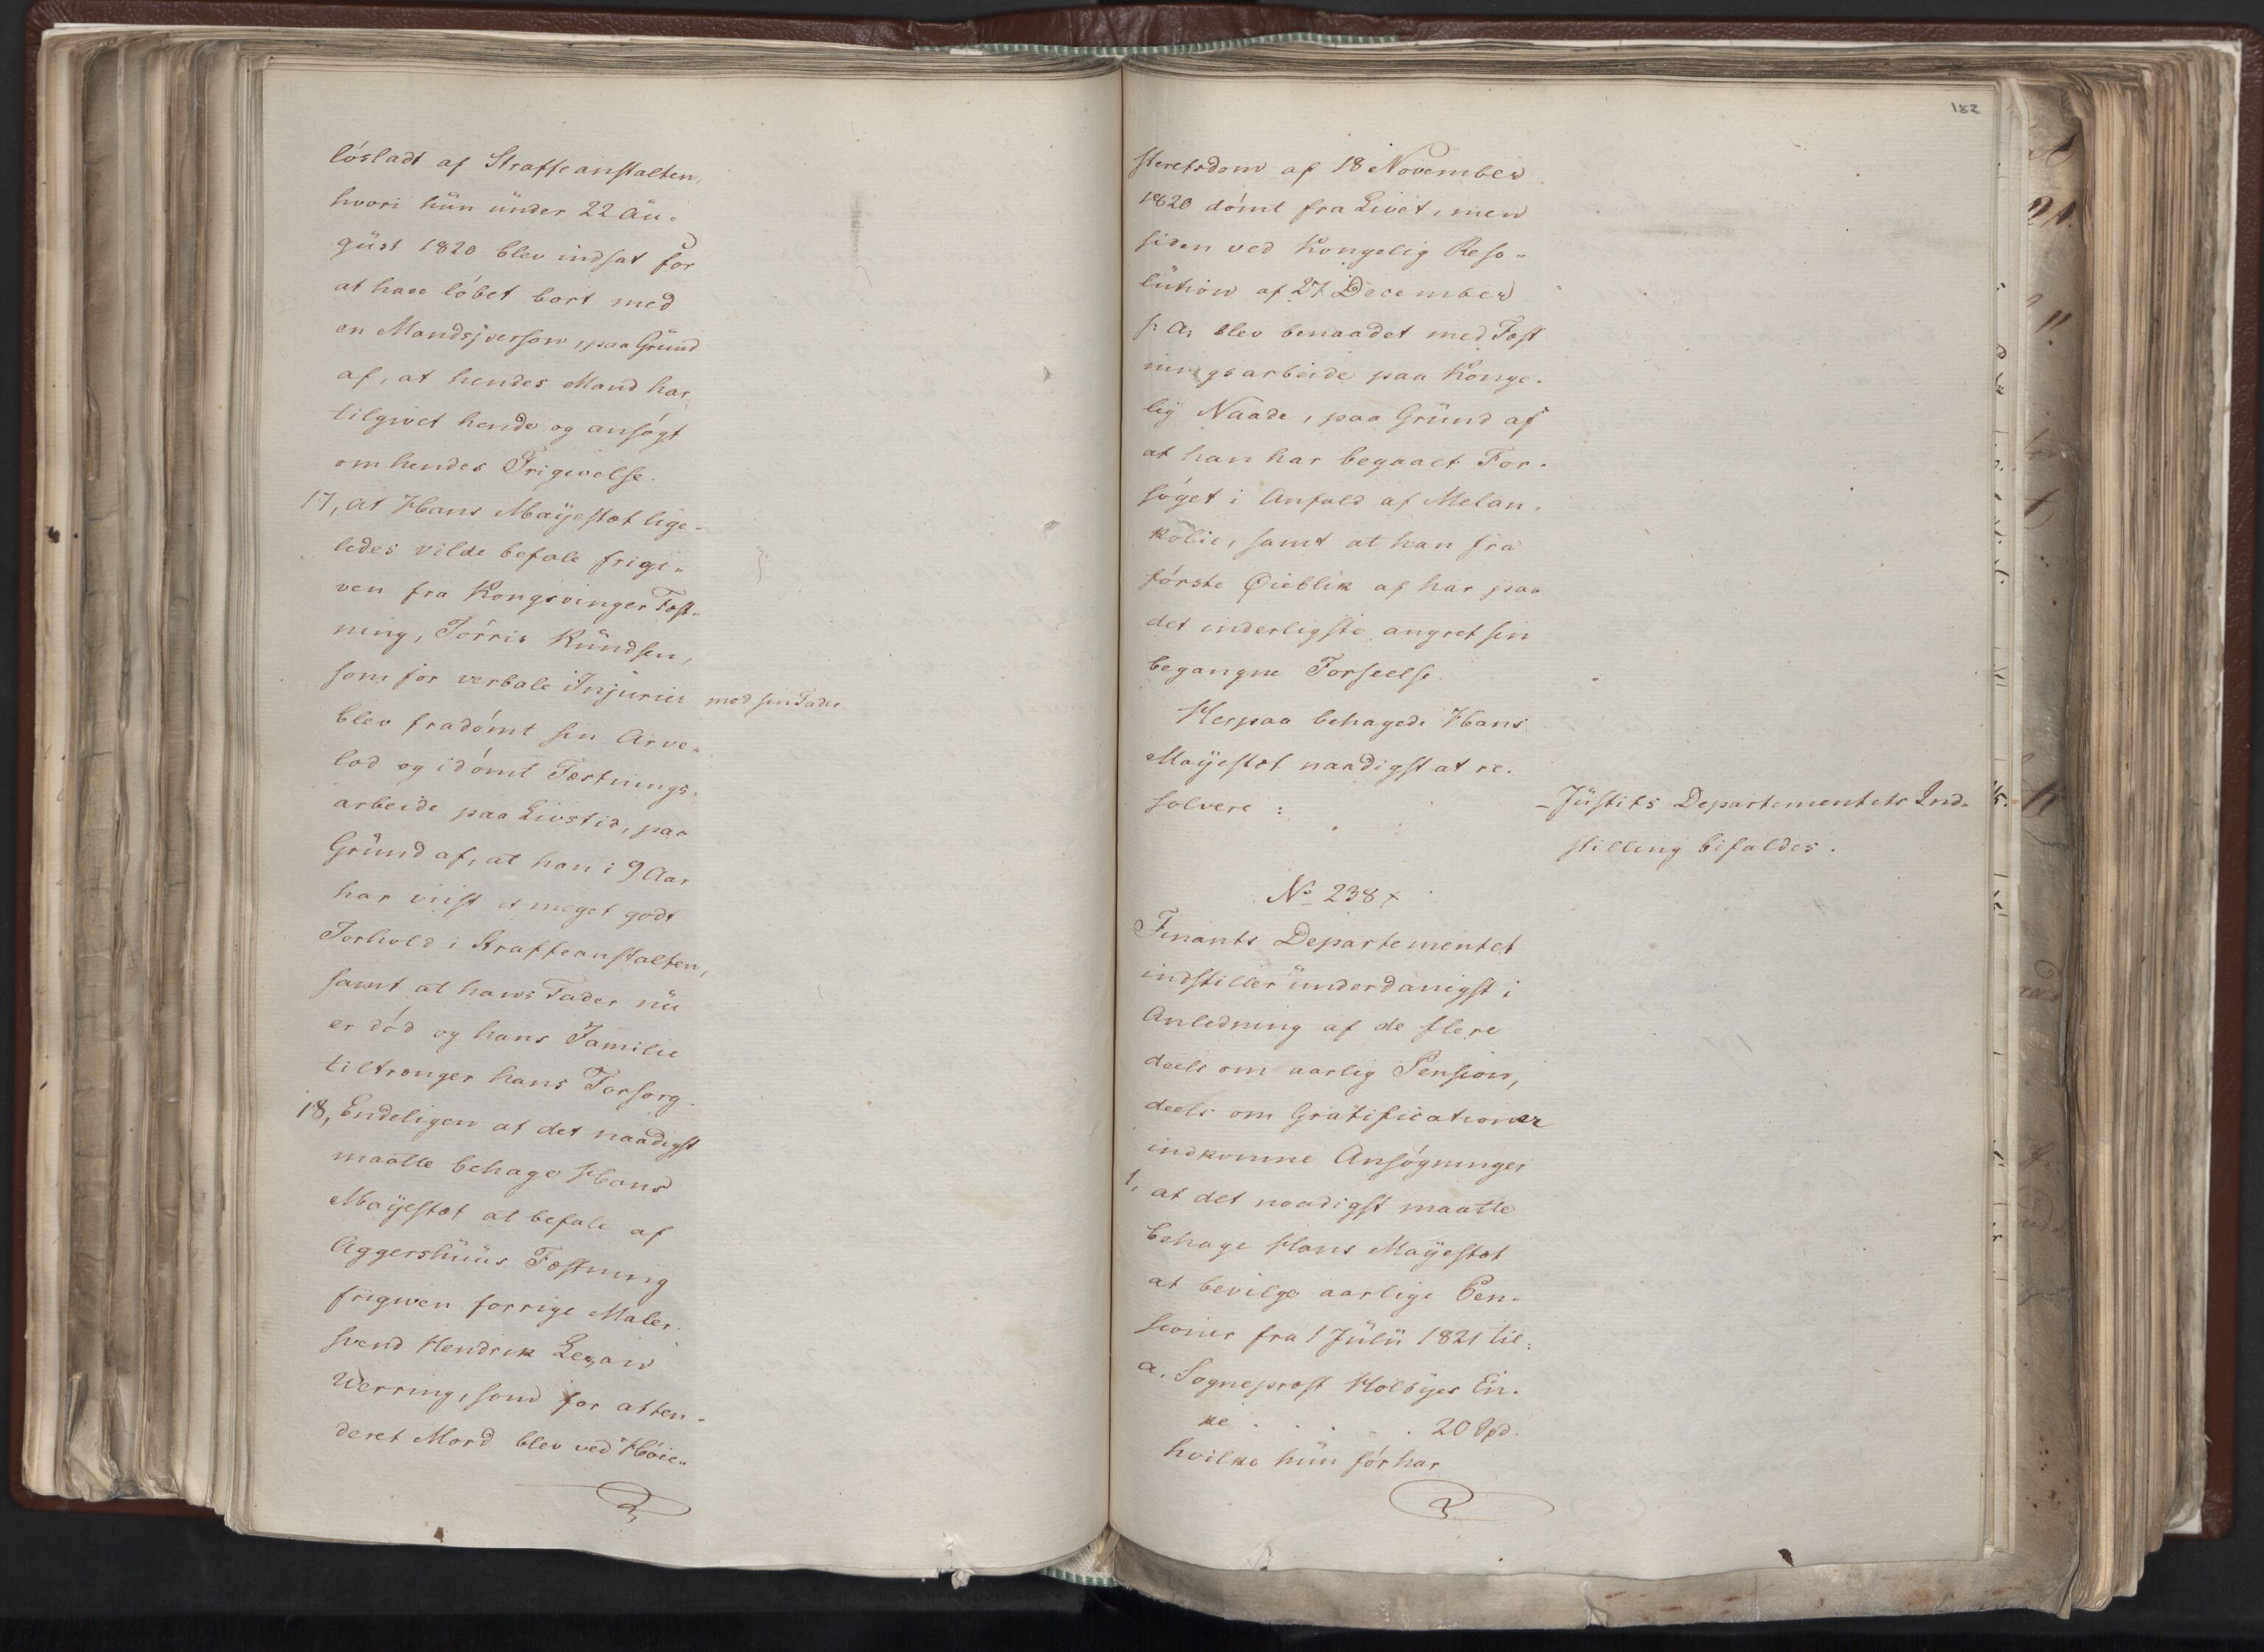 lösladt af Straffeanstalten,
hvori hun under 22 Au-
gust 1820 blev indsat for
at have løbet bort med
en Mandsperson, paa Grund
af, at hendes Mand har
tilgivet hende og ansøgt
om hendes Frigivelse.
17, at Hans Mayestæt lige-
ledes vilde befale frigi-
ven fra Kongsvinger Fæst-
ning, Tørris Knudsen,
som for verbale Injurier mod sin Fader
blev fradømt sin Arve-
lod og idømt Fæstnings-
arbeide paa Livstid, paa
Grund af, at han i 9 Aar
har viist et meget godt
Forhold i Straffeanstalten,
samt at hans Fader nu
er død og hans Familie
tiltrænger hans Forsorg.
18, Endeligen at det naadigst
maatte behage Hans
Mayestæt at befale af
Aggershuus Fæstning
frigiven forrige Maler-
svend Hendrik
Werring, som for atten-
deret Mord blev ved Høie-
182
steretsdom af 18 November
1820 dømt fra Livet, men
siden ved Kongelig Reso-
lution af 27 December
s: A: blev benaadet med Fæst
ningsarbeide paa Konge-
lig Naade, paa Grund af
at han har begaaet For-
søget i Anfald af Melan-
kolie, samt at han fra
første Øieblik af har paa
det inderligste angret sin
begangne Forseelse.
Herpaa behagede Hans
Mayestæt naadigst at re-
solvere:
- Justits Departementets Ind-
stilling bifaldes.
No 238
Finants Departementet
indstiller underdanigst i
Anledning af de flere
deels om aarlig Pension,
deels om Gratificationer
indkomne Ansøgninger
1, at det naadigst maatte
behage Hans Mayestæt
at bevilge aarlige Pen-
sioner fra 1 Julii 1821 til:
a. Sogneprest Holbyes En-
ke . . . . . 20 Spd.
hvilke hun før har